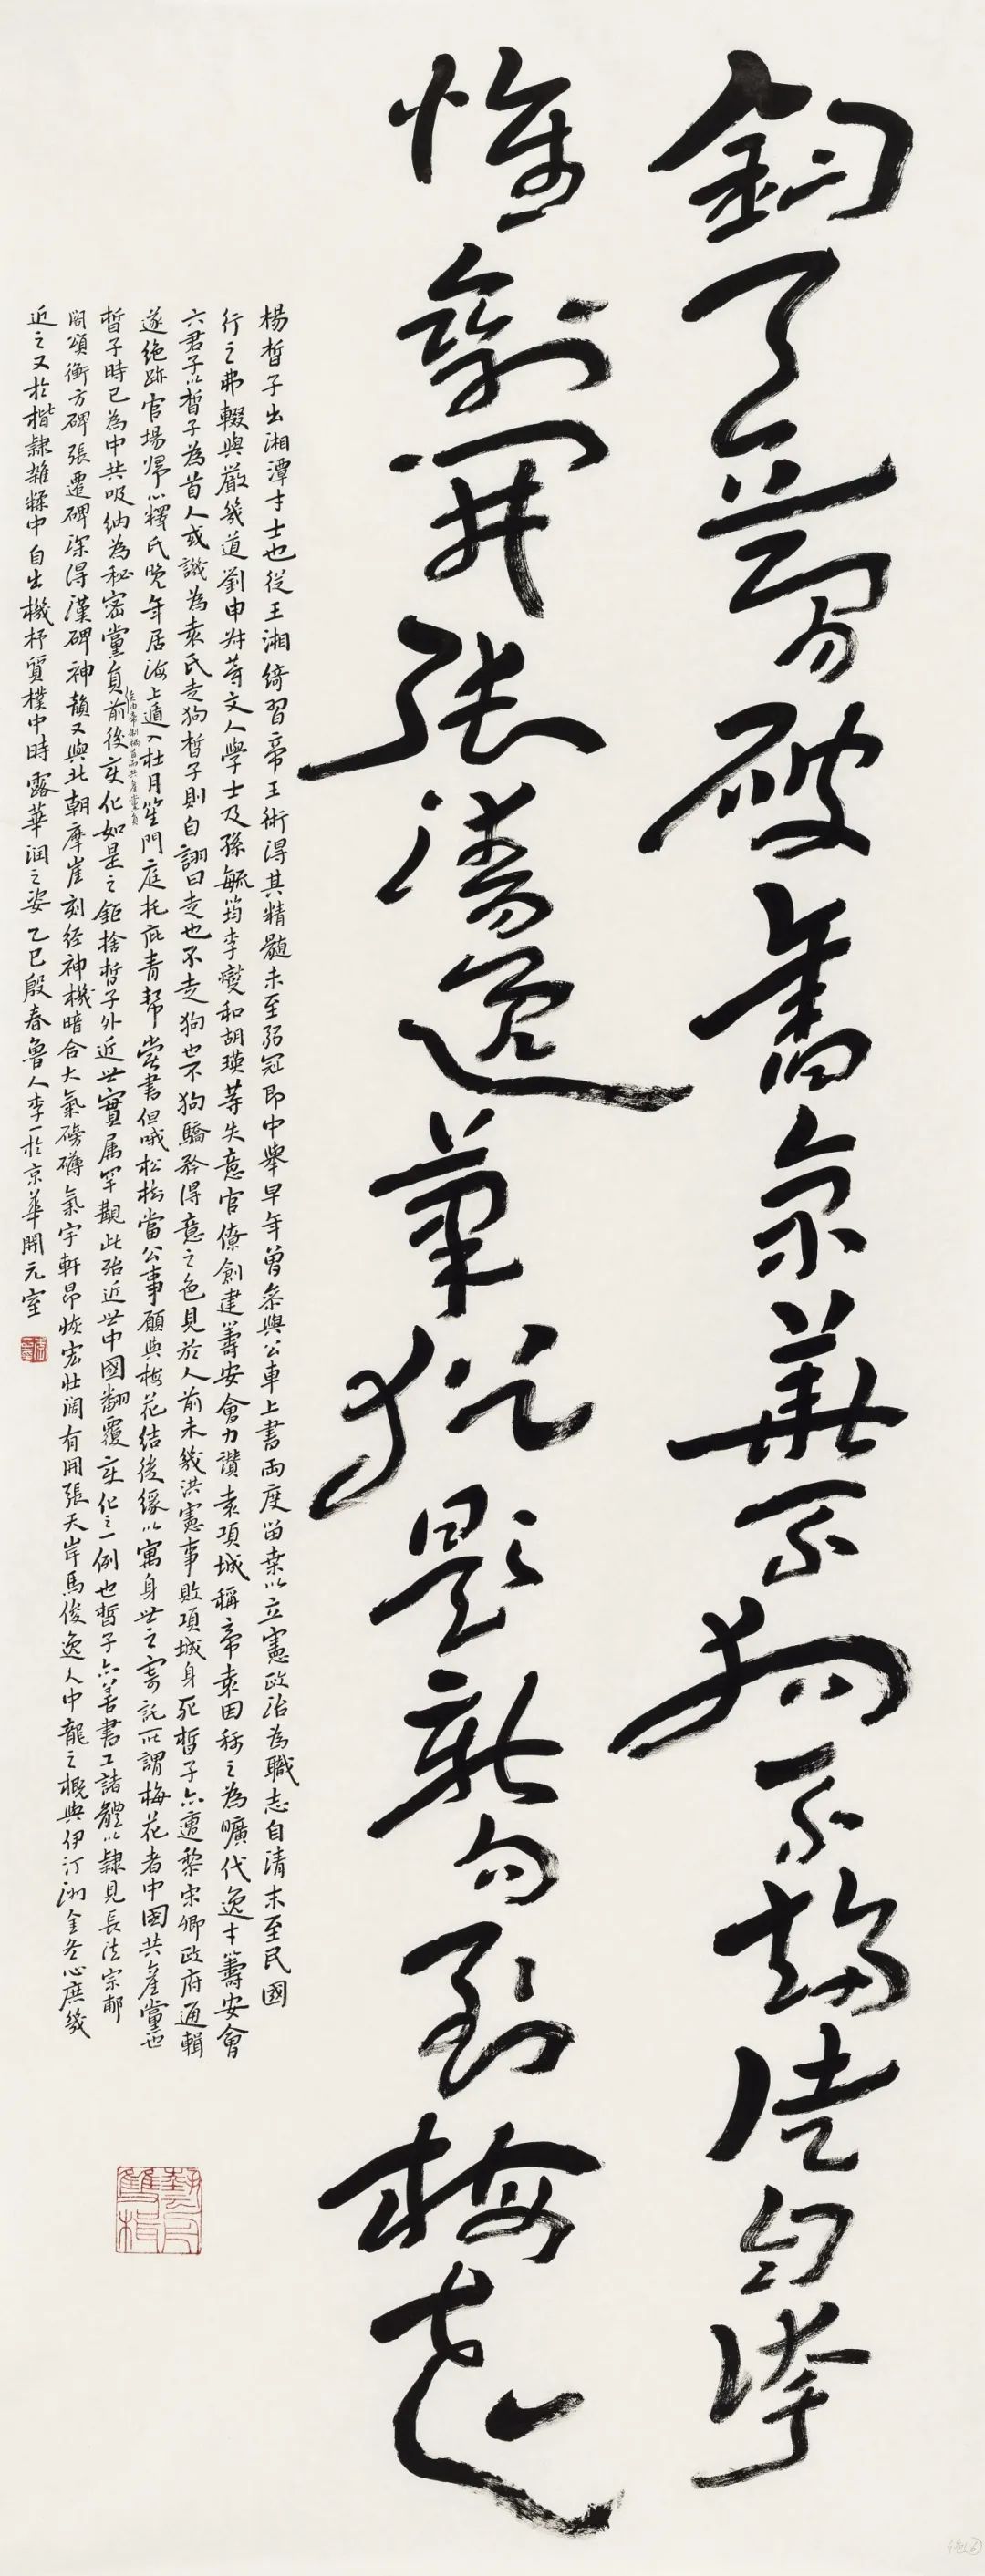 鈞天夢破舊京華不狗不趨徒自誇
惟剩開張清逸筆猶題新句對梅花
楊皙子出湘潭才士也從王湘綺習帝王術得其精髓未至弱冠即中舉早年曾參與公車上書兩度留桑以立憲政治為職志自清末至民國
行之弗輟與嚴幾道劉申叔等文人學士及孫毓筠李燮和胡瑛等失意官僚創建籌安會力讚袁項城稱帝袁因稱之為曠代逸才籌安會
六君子以皙子為首人或譏為袁氏走狗皙子則自詡曰走也不走狗也不狗驕矜得意之色見於人前未幾洪憲事敗項城身死皙子亦遭黎宋卿政府通輯
遂絕跡官場歸心釋氏晚年居海上遁入杜月笙門庭托庇青幫嘗書但哦松樹當公事願與梅花結後緣以寓身世之寄託所謂梅花者中國共產黨也
皙子時已為中共吸納為秘密黨員前後變化如是之鉅捨皙子外近世實屬罕覯此殆近世中國翻覆變化之一例也皙子亦善書工諸體以隸見長法宗郙
閣頌衡方碑張遷碑深得漢碑神韻又與北朝摩崖刻經神機暗合大氣磅礴氣宇軒昂恢宏壯闊有開張天岸馬俊逸人中龍之概與伊汀洲金冬心庶幾
近之又於楷隸雜糅中自出機杼質樸中時露華潤之姿乙巳殷春魯人李一於京華開元室
藝文雙楫